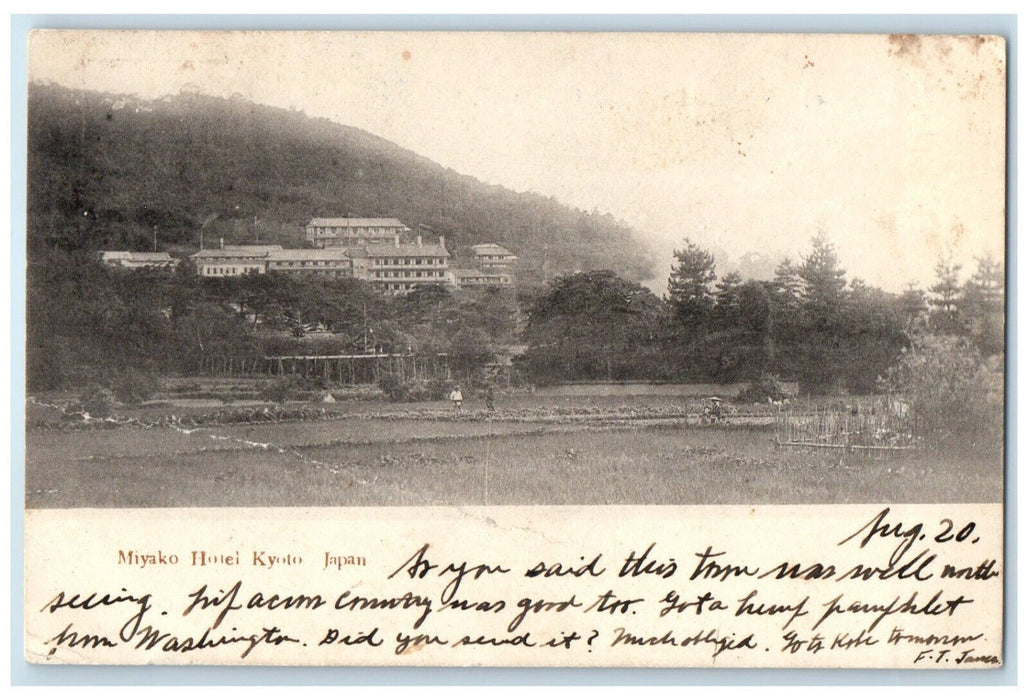 Aug. 20.
Miyako Hotel Kyoto Japan
As you said this town was well worth
seeing. Trip across country was good too. Got a hemp pamphlet
from Washington. Did you send it? Much obliged. Go to Kobe tomorrow.
F. T. James